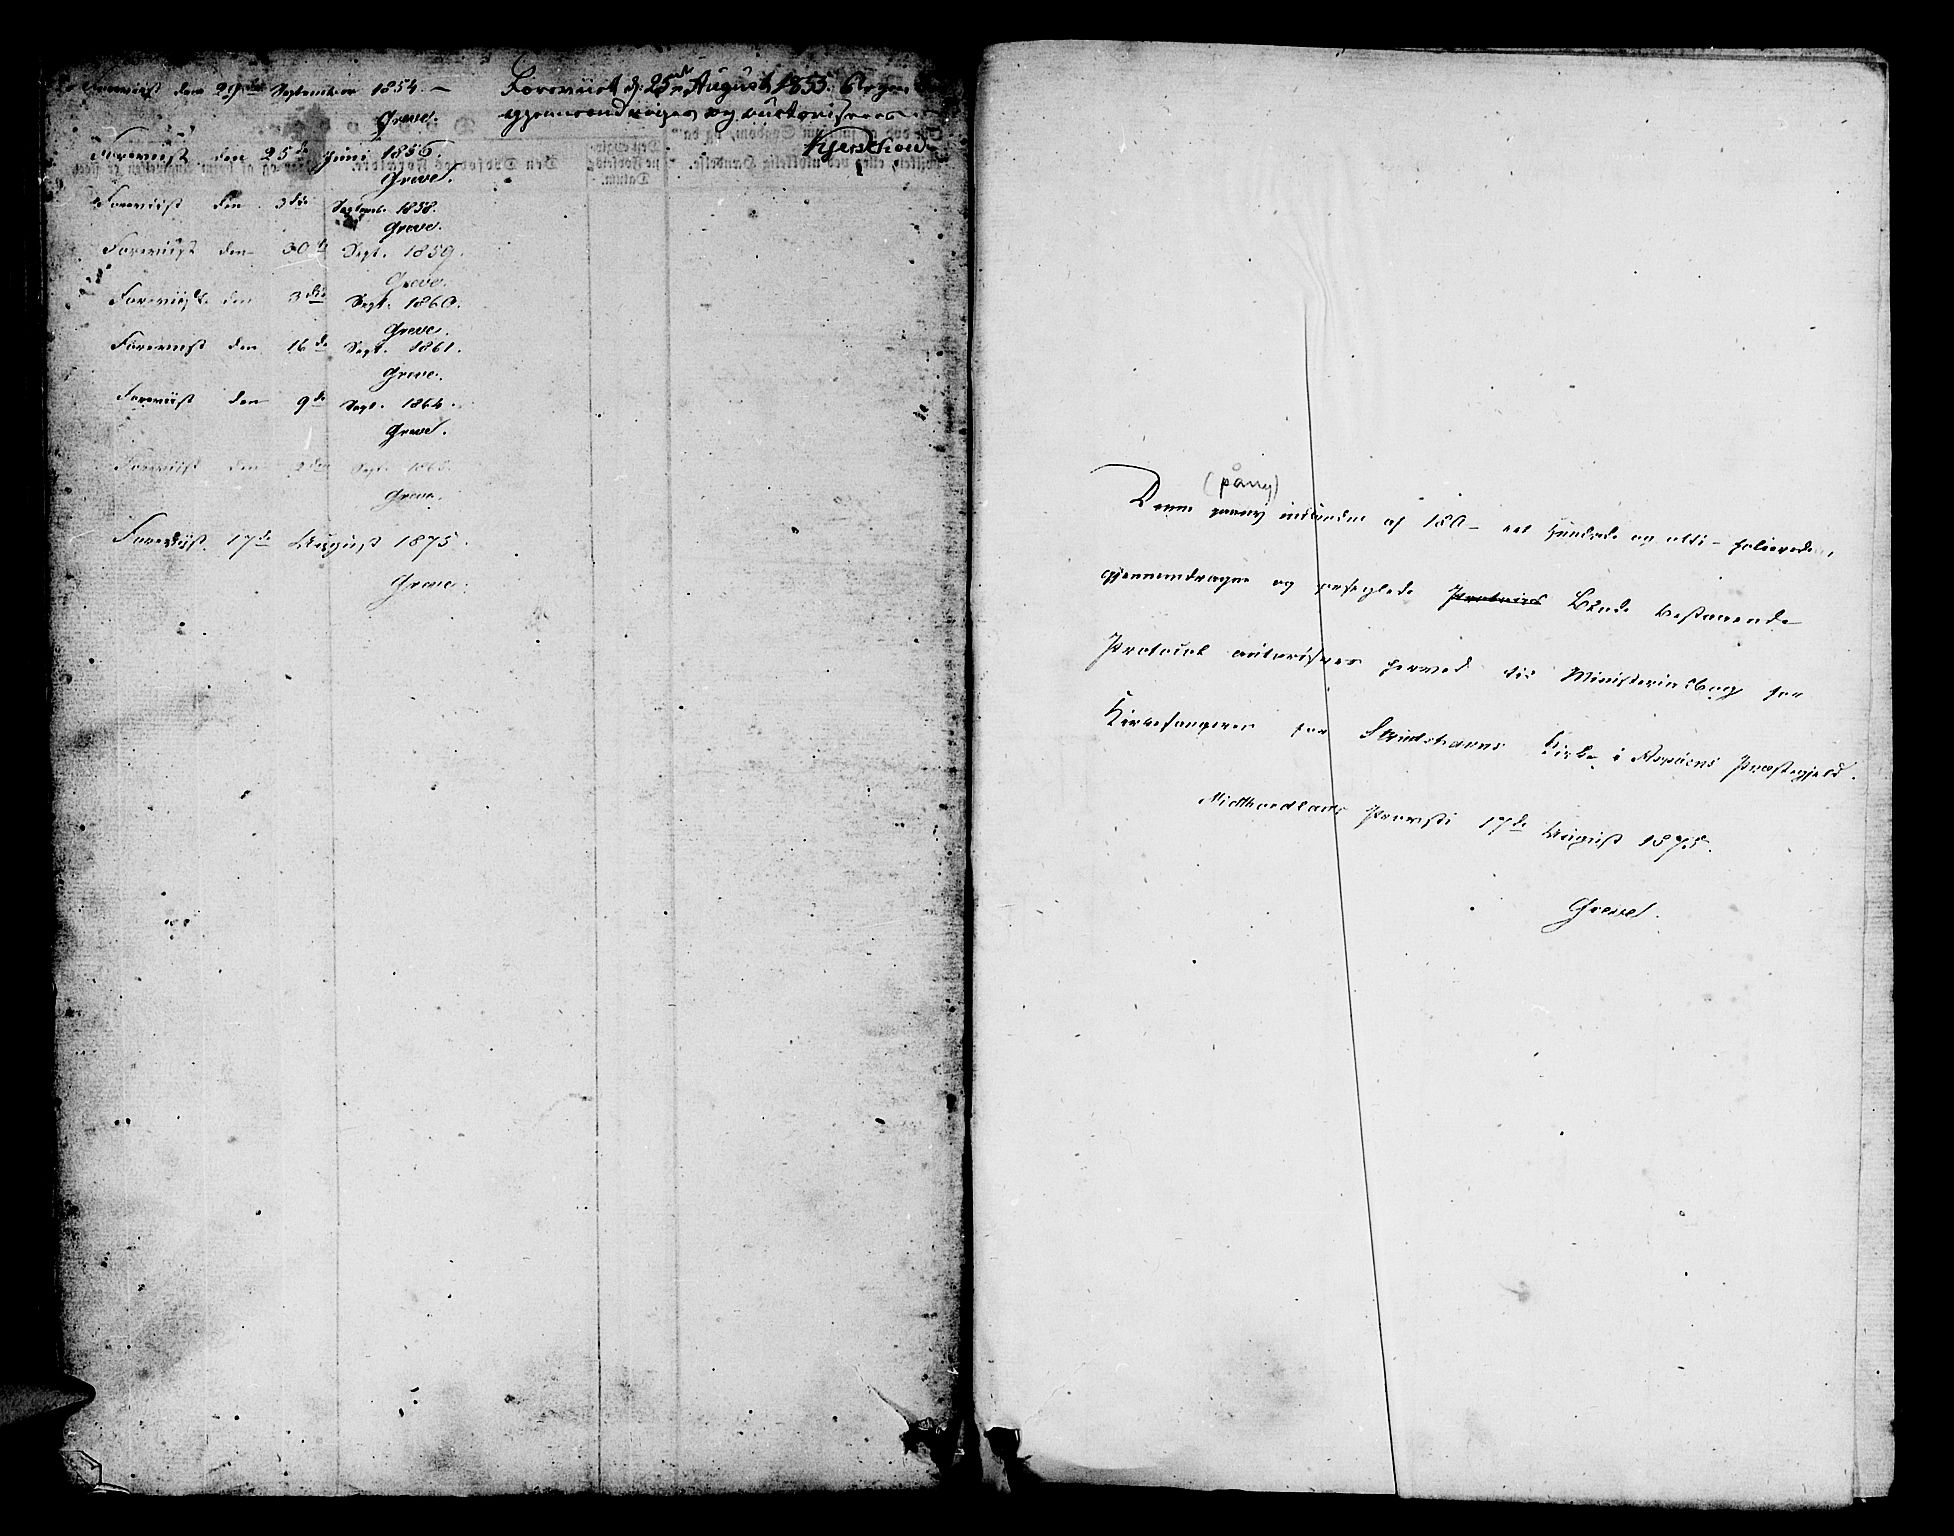 Foreviist den 29de September 1854. –
Greve.
Foreviist den 25de Juni 1856.
Greve.
Foreviist den 3die Septemb. 1858.
Greve.
Foreviist den 30te Sept. 1859.
Greve.
Foreviist den 3die Sept. 1860.
Greve.
Foreviist den 16de Sept. 1861.
Greve.
Foreviist den 9de Sept. 1864.
Greve.
Foreviist den Sept. 186
Greve.
Foreviist 17de August 1875.
Greve.
Foreviist d: 25de August 1853.
og auctoriseres
(påny)
Denne paany indbundne af 180 – eet hundrede og otti – folierede,
gjennemdragne og forseglede Blade bestaaende
Protocol autoriseres herved til Ministerialbog for
Kirkesangeren for Strudshavns Kirke i Askøens Præstegjeld.
Midthordlands Provsti 17de August 1875.
Greve.